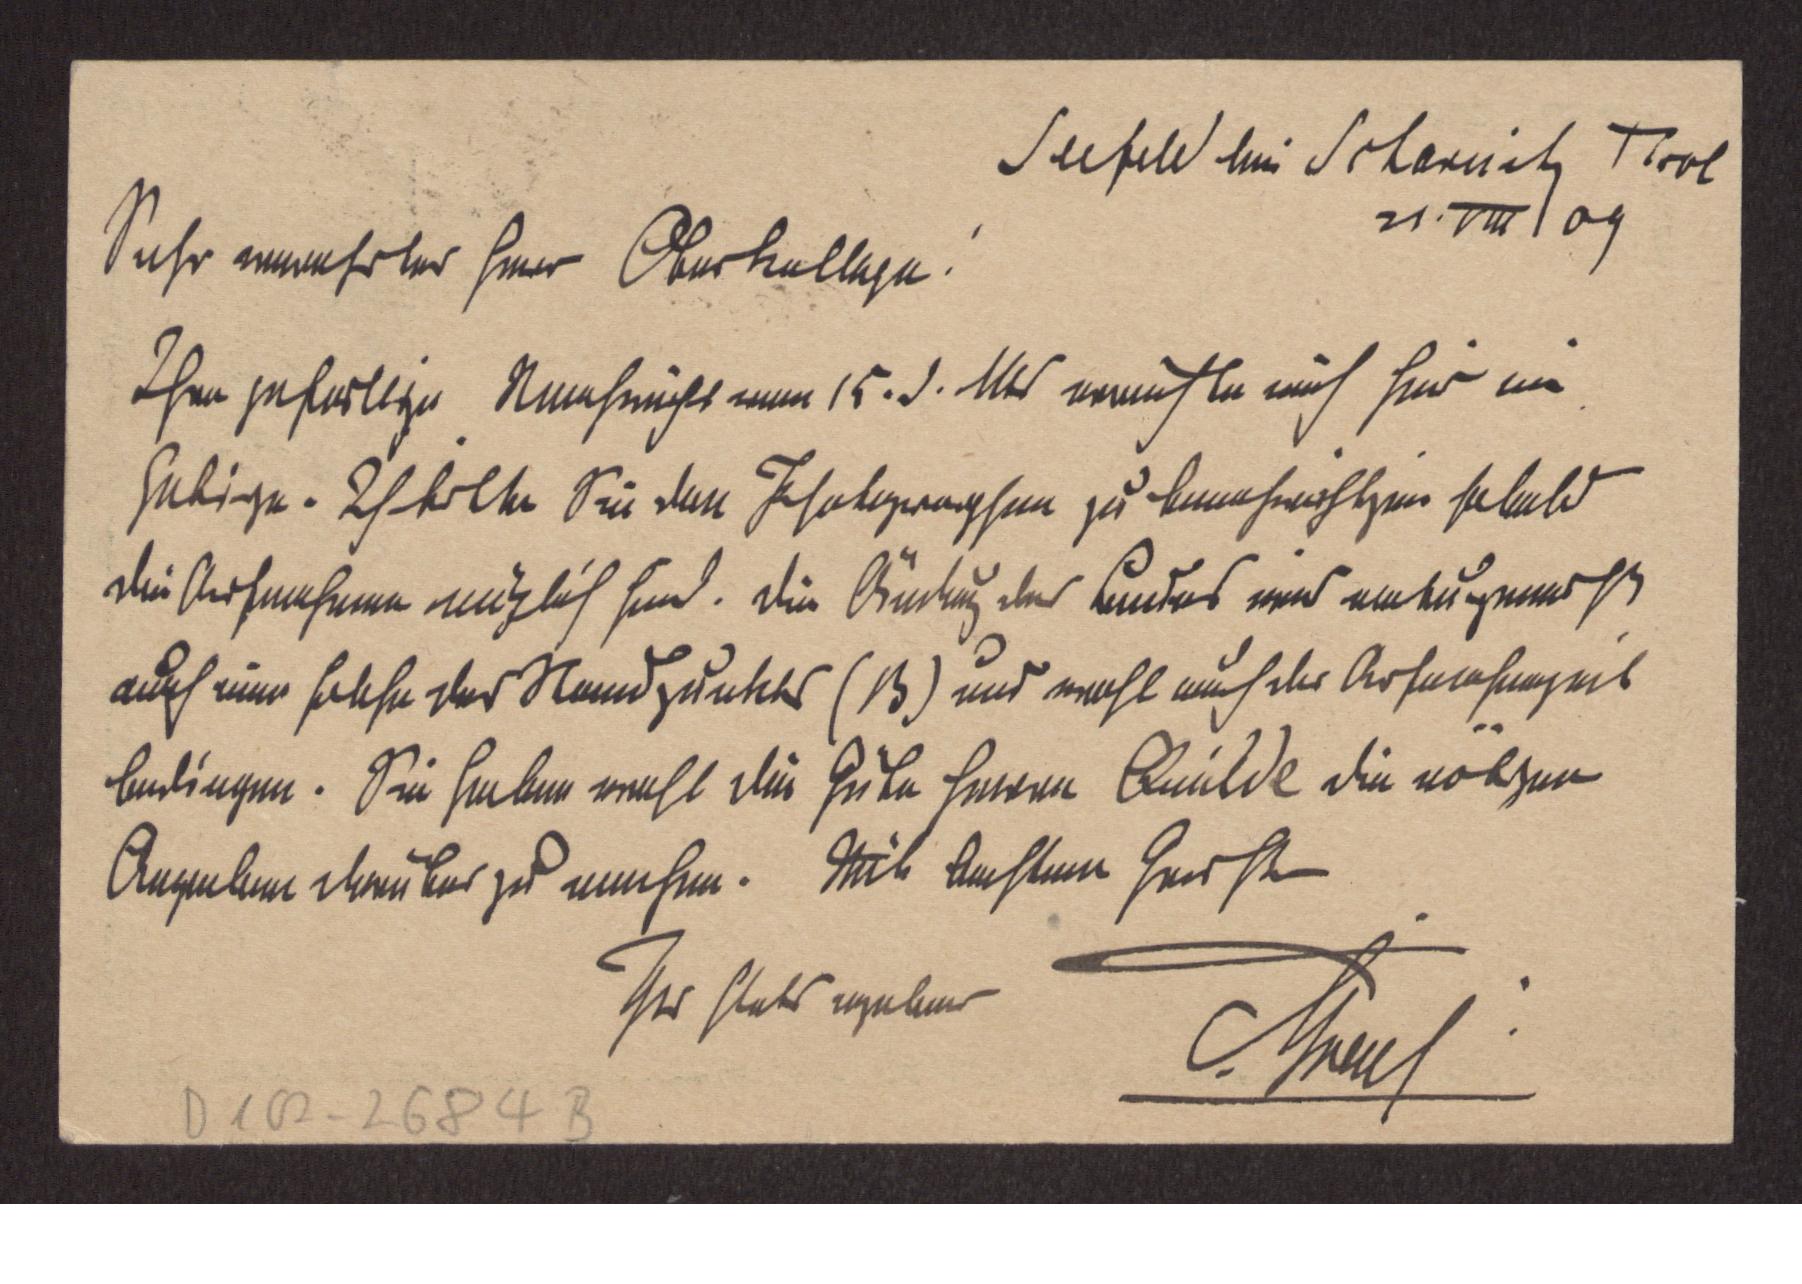 Seefeld bei Scharnitz Tirol
21. VIII 09
Sehr verehrter Herr Oberkollege!
Ihre gefällige Nachricht vom 15. d. Mts erreichte mich hier im
Gebirge. Ich bitte Sie den Photographen zu benachrichtigen sobald
die Aufnahmen möglich sind. Die Änderung des wird naturgemäß
auch eine solche des Standpunktes (B) und wohl auch der Aufnahmezeit
bedingen. Sie haben wohl die Güte Herrn die nötigen
Angaben darüber zu machen. Mit bestem Gruße
Ihr stets ergebener
C.
D 102-2684 B